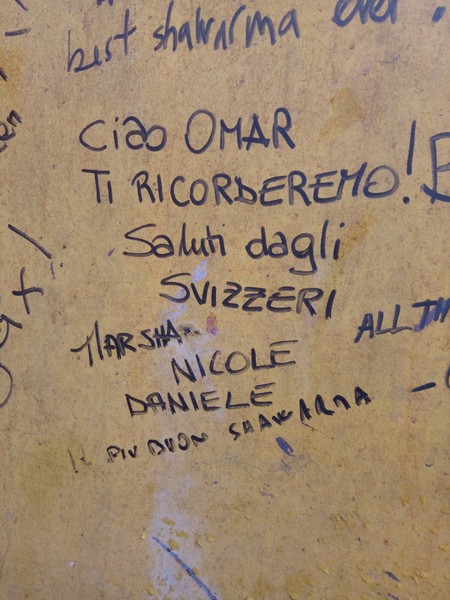 best shawarma ever.
Ciao OMAR
TI RICORDEREMO!
Saluti dagli
SVIZZERI
ALL TH
MARSHA
NICOLE
DANIELE
IL PIU BUON SHAWARMA